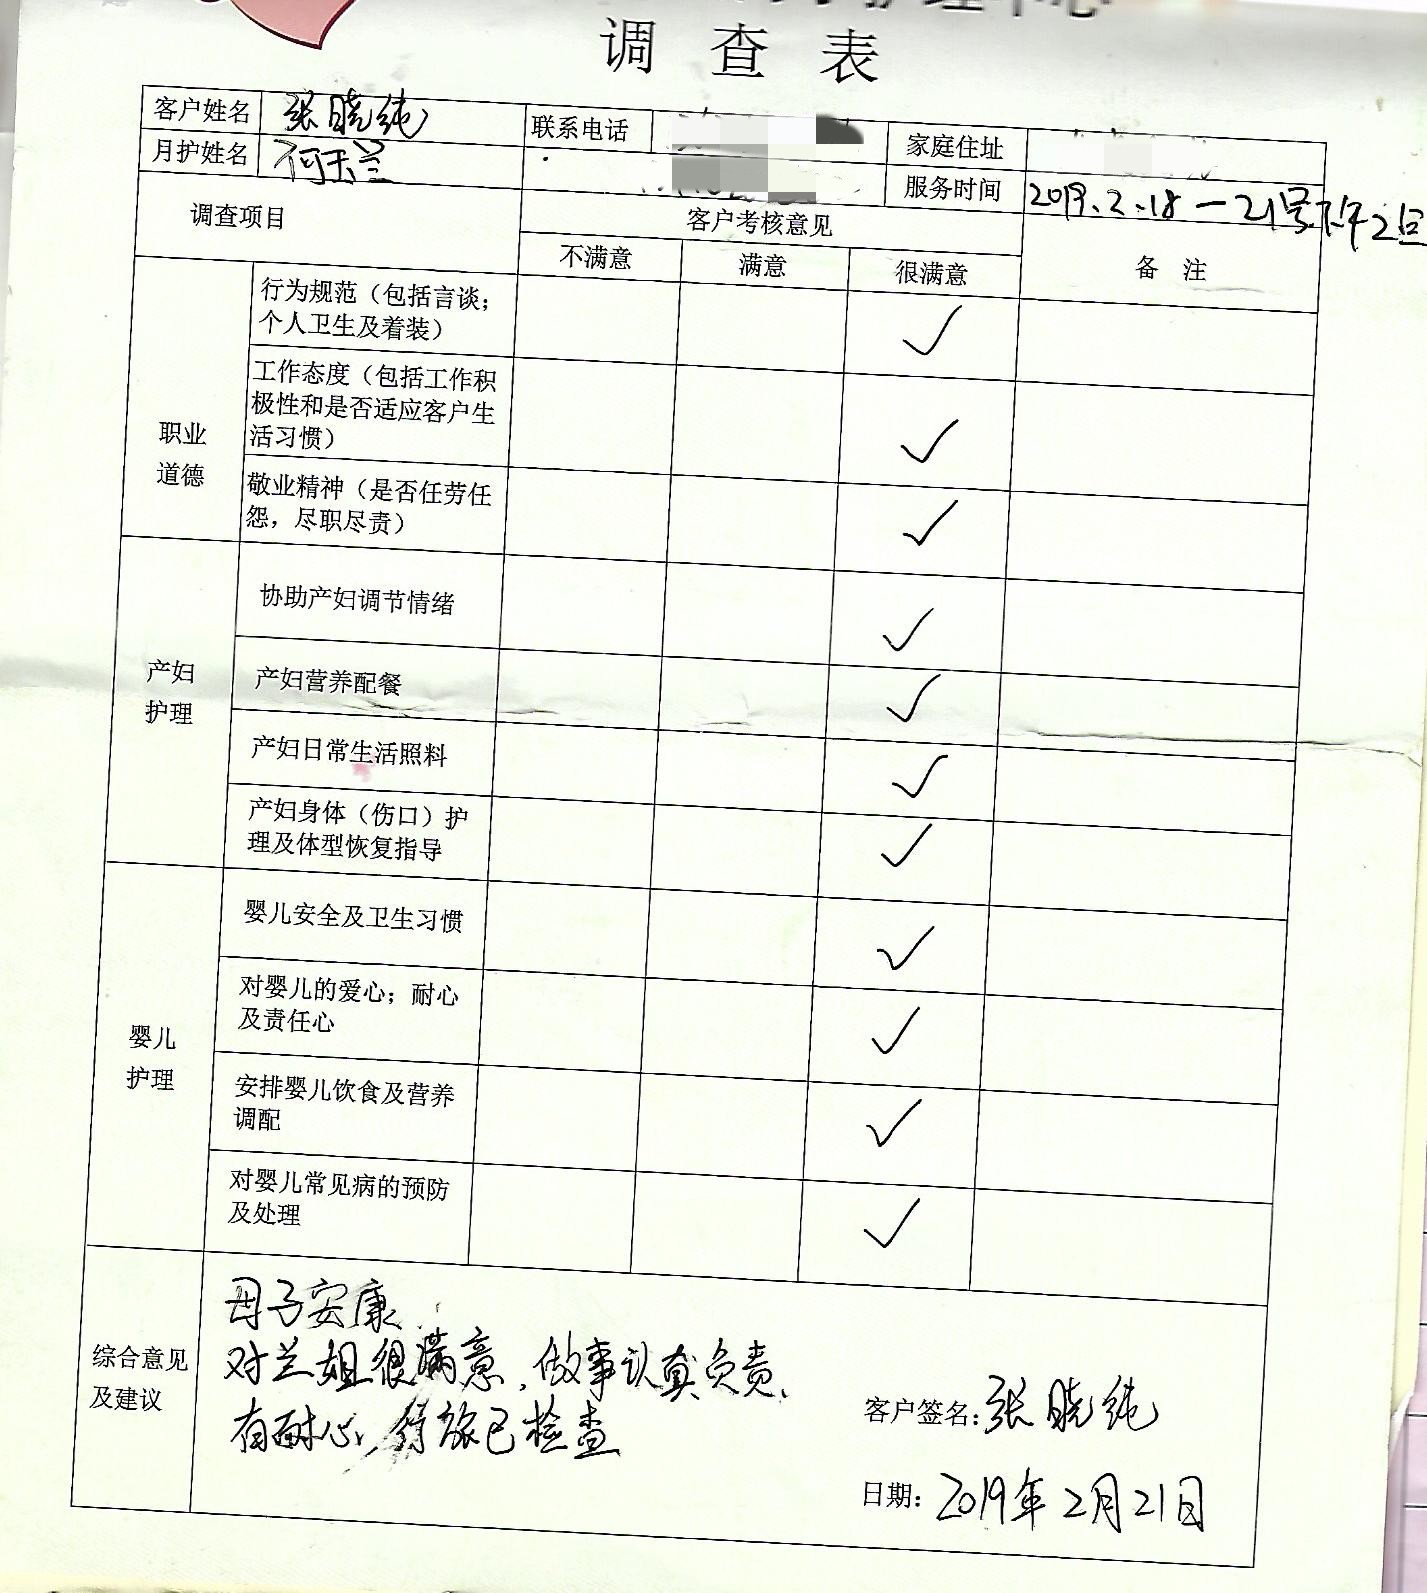 调查表
客户姓名 张晓纯 联系电话 家庭住址
月护姓名 何玉兰 服务时间 2019.2.18—21号下午2点
调查项目 客户考核意见 备 注
不满意 满意 很满意
职业
道德
行为规范（包括言谈；
个人卫生及着装） ✓
工作态度（包括工作积
极性和是否适应客户生
活习惯） ✓
敬业精神（是否任劳任
怨，尽职尽责） ✓
产妇
护理
协助产妇调节情绪 ✓
产妇营养配餐 ✓
产妇日常生活照料 ✓
产妇身体（伤口）护
理及体型恢复指导 ✓
婴儿
护理
婴儿安全及卫生习惯 ✓
对婴儿的爱心；耐心
及责任心 ✓
安排婴儿饮食及营养
调配 ✓
对婴儿常见病的预防
及处理 ✓
综合意见
及建议
母子安康
对兰姐很满意，做事认真负责、
有耐心，行旅已检查
客户签名：张晓纯
日期：2019年2月21日